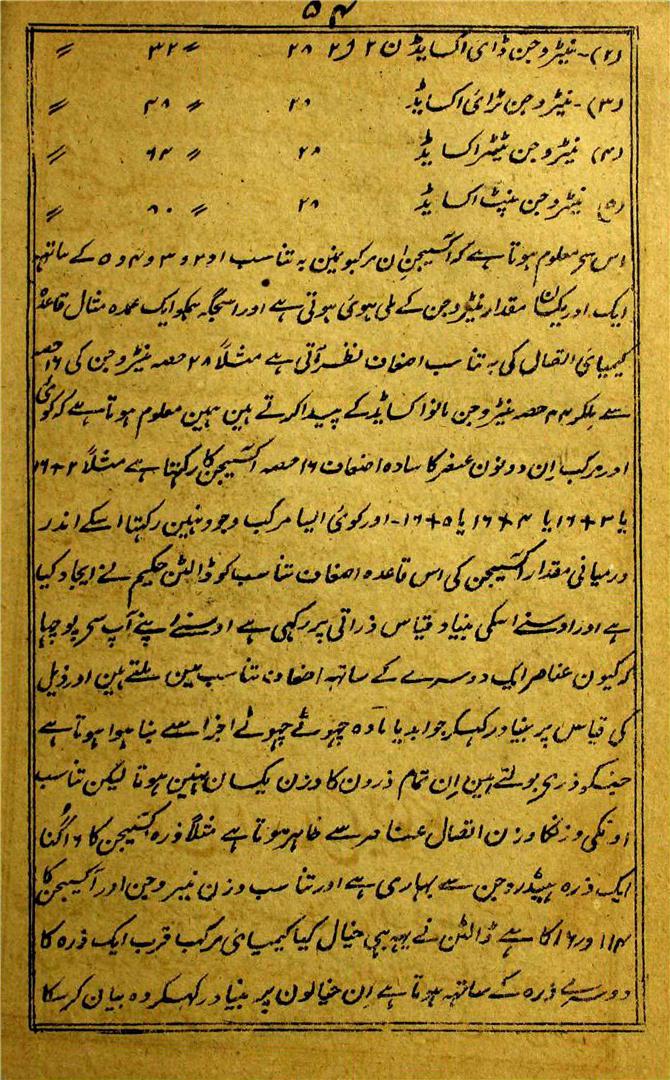 ۵۴
(۲)- نیٹروجن ڈائی اکسایڈ ن ۲ و ۲ ۲۸ " ۳۲ "
(۳)- نیٹروجن ٹرائی اکسایڈ ۲۸ " ۴۸ "
(۴) نیٹروجن ٹیٹر اکسایڈ ۲۸ " ۶۴ "
(۵) نیٹروجن پنٹ اکسایڈ ۲۸ " ۸۰ "
اس سے معلوم ہوتا ہے کہ آکسیجن ان مرکبونمین بہ تناسب ا و ۲ و ۳ و ۴ و ۵ کے ساتہہ
ایک اور یکسان مقدار نیٹروجن کے ملی ہوئی ہوتی ہے اور اسجگہ ہمکو ایک عمدہ مثال قاعدہ
کیمیائی اتصال کی بہ تناسب اضعاف نظر آتی ہے مثلاً ۲۸ حصہ نیٹروجن کی ۱۶ حصہ
سے ملکر ۴۴ حصہ نیٹروجن مانو اکسایڈ کے پیدا کرتے ہین ہمین معلوم ہوتا ہے کہ کوئی
اور مرکب ان دونون عنصر کا سادہ اضعاف ۱۶ حصہ آکسیجن کا رکہتا ہے مثلاً ۲+۱۶
یا ۳+۱۶ یا ۴+۱۶ یا ۵+۱۶- اور کوئی ایسا مرکب وجود نہین رکہتا اسکے اندر
درمیانی مقدار آکسیجن کی اس قاعدہ اضعاف تناسب کو ڈالٹن حکیم نے ایجاد کیا
ہے اور اوسنے اسکی بنیاد قیاس ذراتی پر رکہی ہے اوسنے اپنے آپ سے پوچہا
کہ کیون عناصر ایک دوسرے کے ساتہہ اضعاف تناسب مین ملتے ہین اور ذیل
کی قیاس پر بنیاد رکہکر جواب دیا مادہ چہوٹے چہوٹے اجزا سے بنا ہوا ہوتا ہے
جنکو ذری بولتے ہین ان تمام ذرون کا وزن یکسان نہین ہوتا لیکن تناسب
اونکی وزنکا وزن اتصال عناصر سے ظاہر ہوتا ہے مثلاً ذرہ آکسیجن کا ۱۶ گنا
ایک ذرہ ہیڈروجن سے بہاری ہے اور تناسب وزن نیٹروجن اور آکسیجن کا
۱۴ اور ۱۶ کا ہے ڈالٹن نے یہہ بہی خیال کیا کیمیائی مرکب قرب ایک ذرہ کا
دوسرے ذرہ کے ساتہہ ہوتا ہے ان خیالون پر بنیاد رکہکر وہ بیان کر سکا